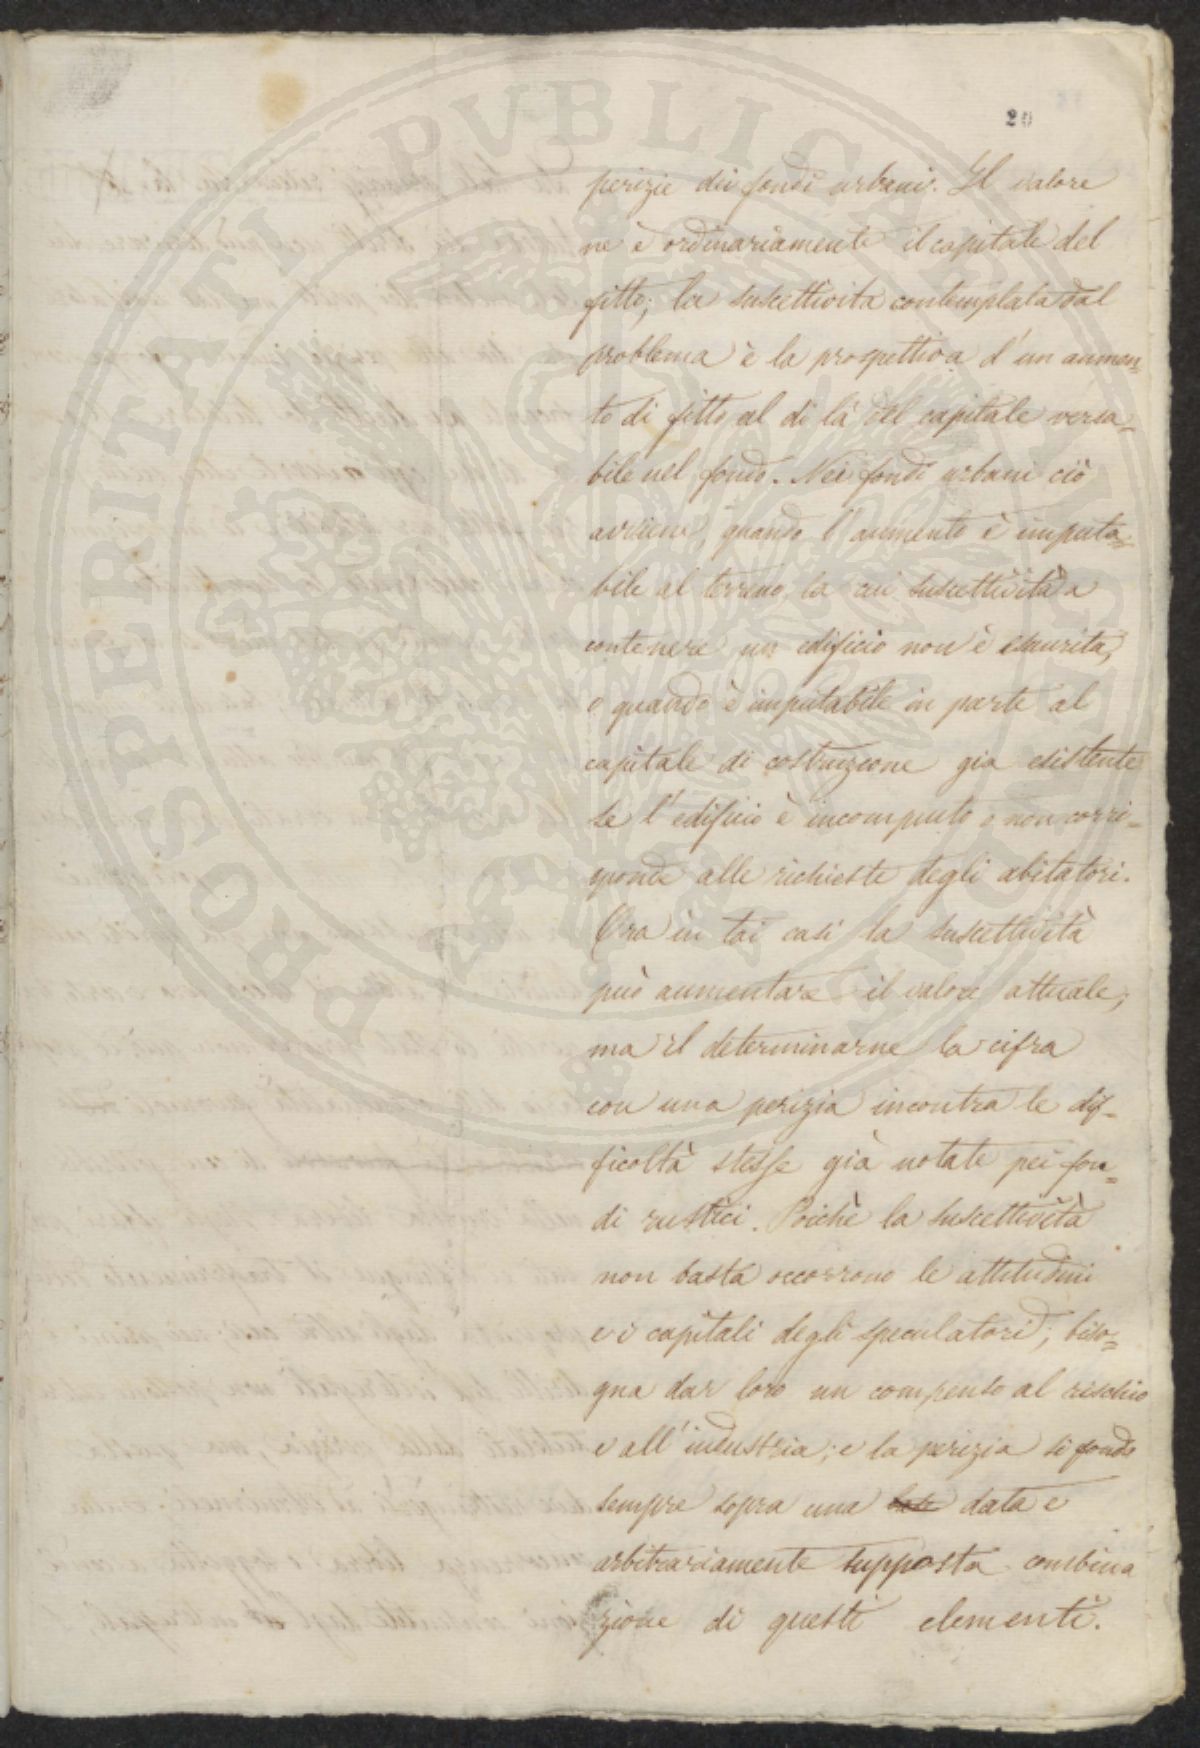 20
perizie dei fondi urbani. Il valore
ne è ordinariamente il capitale del
fitto; la suscettività contemplata dal
problema è la prospettiva d'un aumen=
to di fitto al di là del capitale versa=
bile nel fondo. Nei fondi urbani ciò
avviene, quando l'aumento è imputa=
bile al terreno, la cui suscettività a
contenere un edificio non è esaurita,
o quando è imputabile in parte al
capitale di costruzione già esistente
se l'edificio è incompiuto o non corri=
sponde alle richieste degli abitatori.
Ora in tai casi la suscettività
può aumentare il valore attuale,
ma il determinarne la cifra
con una perizia incontra le dif=
ficoltà stesse già notate pei fon=
di rustici. Poichè la suscettività
non basta occorrono le attitudini
e i capitali degli speculatori; biso=
gna dar loro un compenso al rischio
e all'industria; e la perizia si fonda
sempre sopra una base data e
arbitrariamente supposta combina
zione di questi elementi.
PROSPERITATI PVBLICAE AVGENDAE